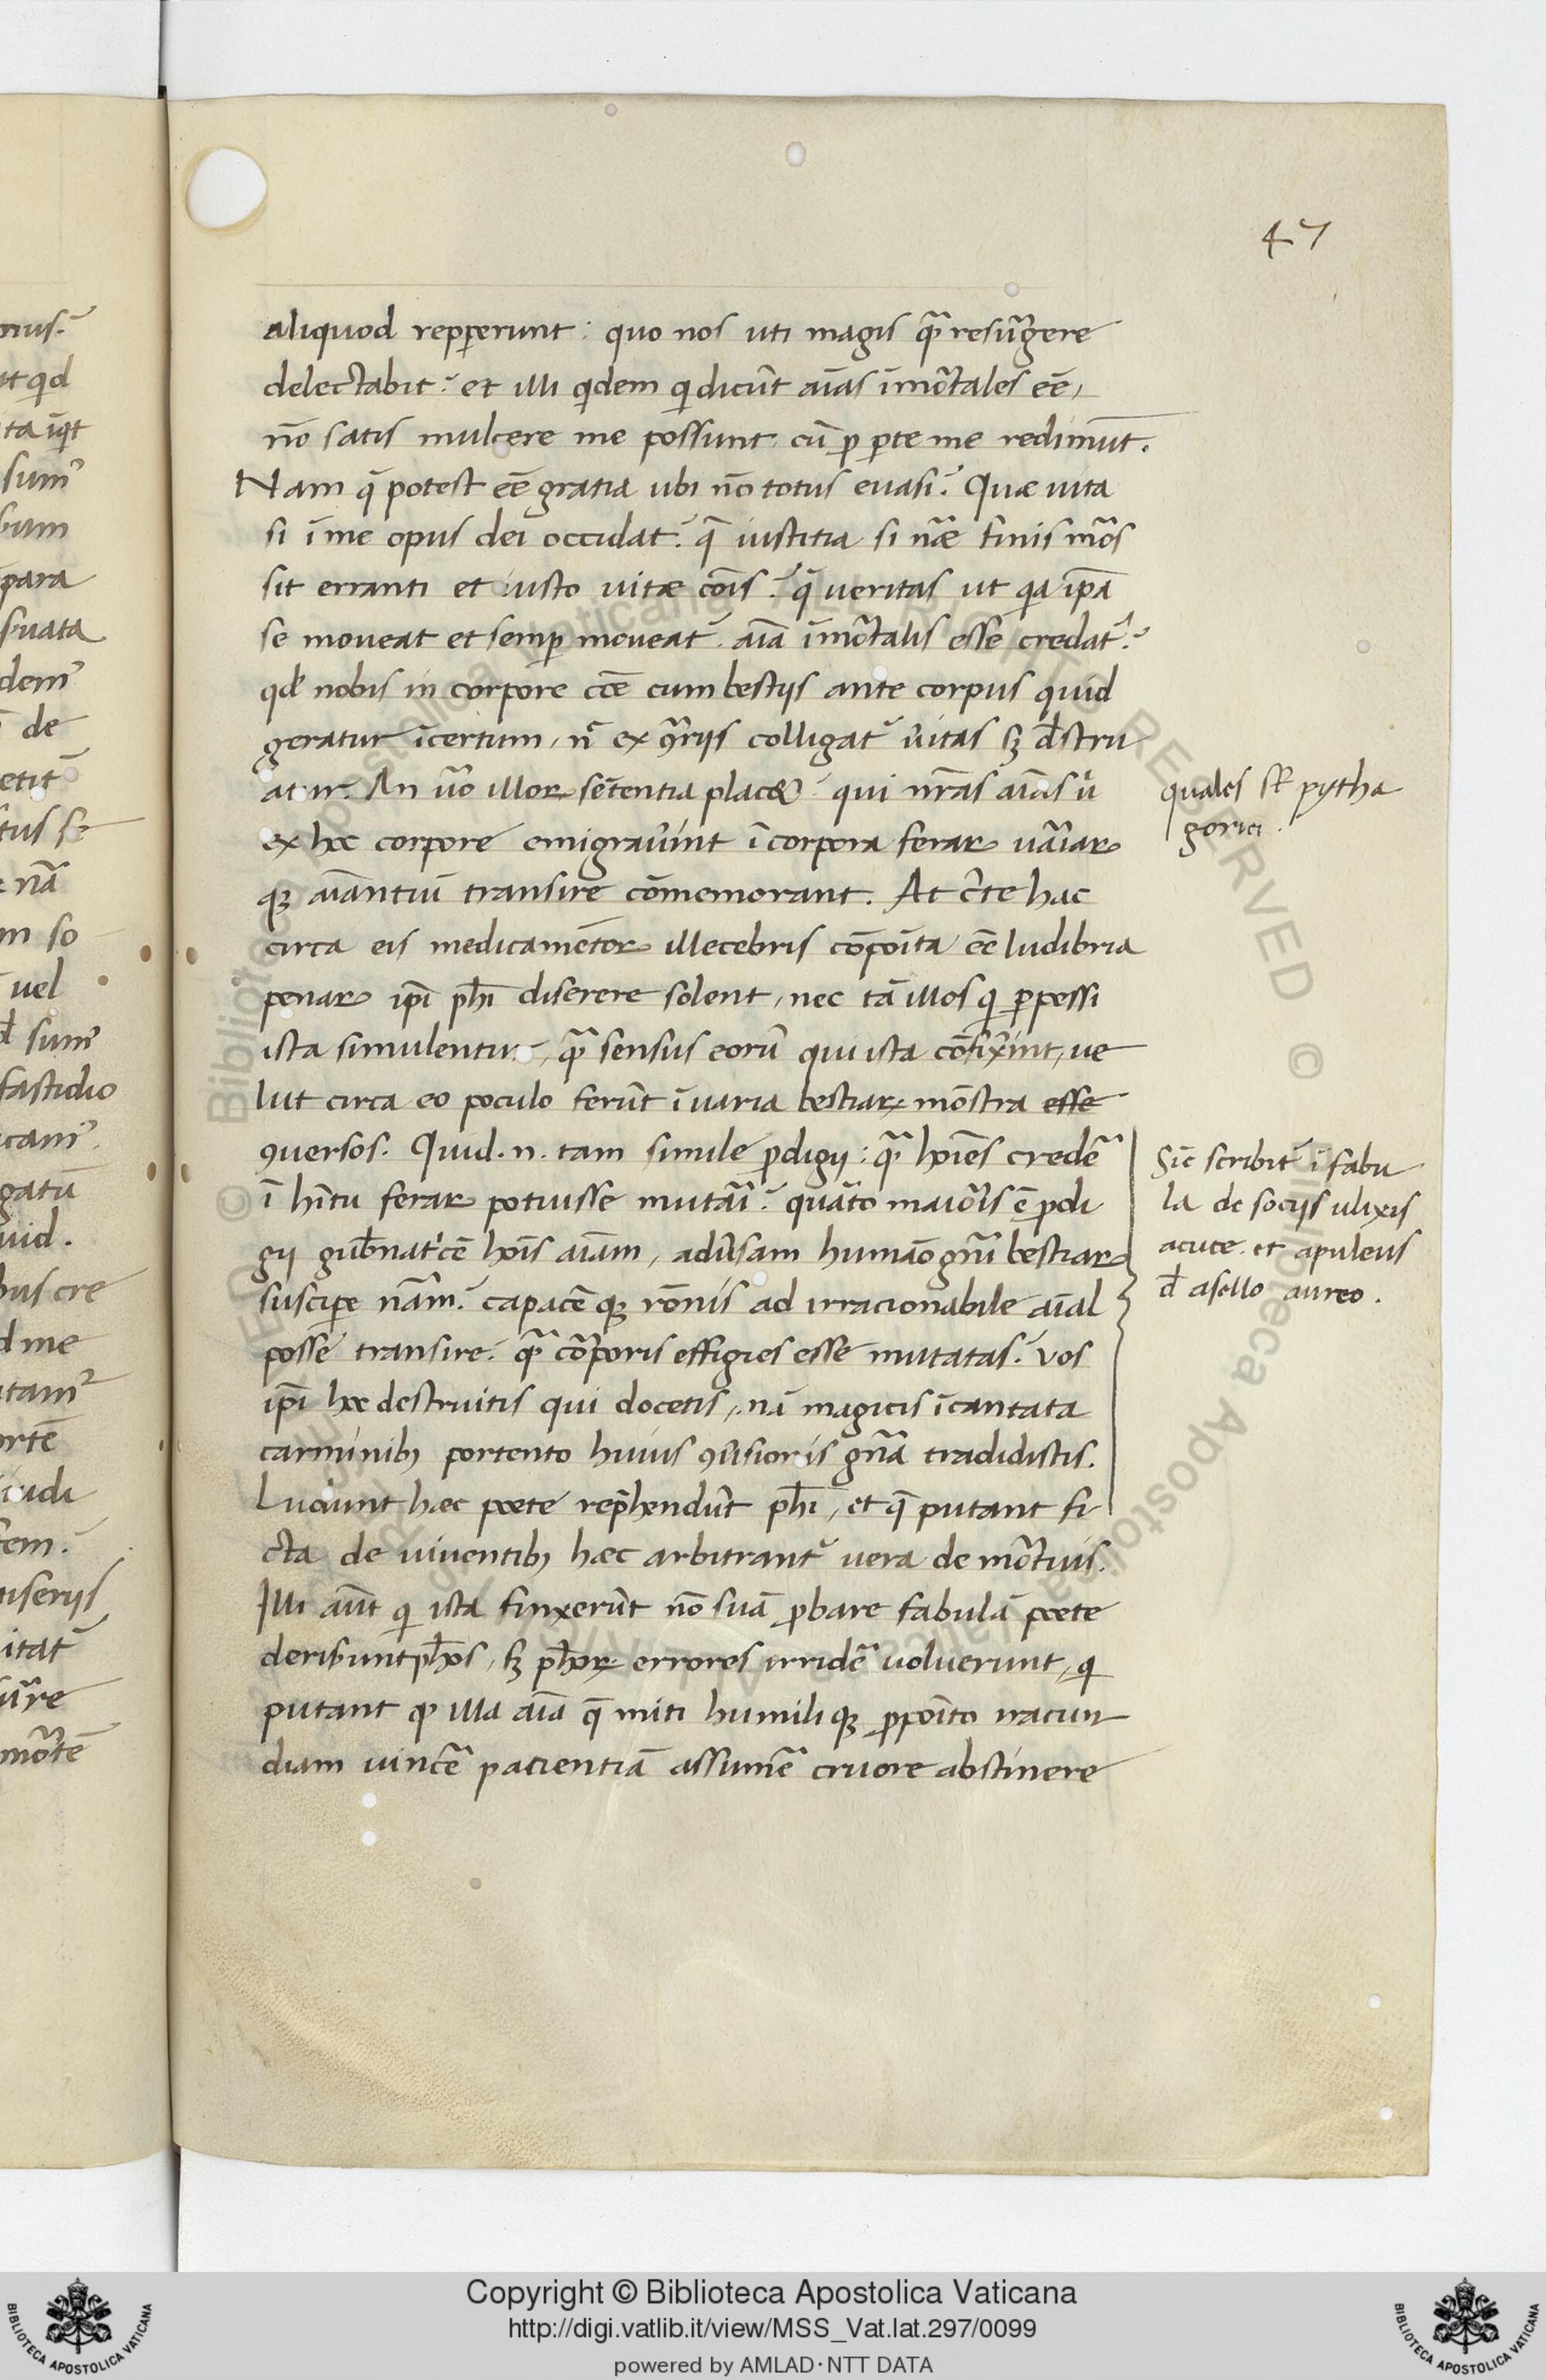 47
aliquod repperunt: quo nos uti magis qᷓ resurgere
delectabit? et illi qdem q dicūt aīas īmortales eē,
nō satis mulcere me possunt cū p pte me redimūt.
Nam q̄ potest eē gratia ubi nō totus euasi? Quae uita
si ī me opus dei occidat? q̄ iustitia si nᷓae finis mōs
sit erranti et iusto uitae cōis? q̄ ueritas ut qa ipā
se moueat et semp moueat, aīa īmortalis esse credat̄?
qd nobis in corpore cōe cum bestijs ante corpus quid
geratur īcertum, n ex 9rijs colligat̄ ūitas sꝫ dstru
atur. An ūo illoꝝ sētentia placet qui nr̄as aīas ū
ex hoc corpore emigrauīnt ī corpora feraꝝ uariaꝝ
qꝫ aīantiū transire cōmemorant. At cte hac
circa eis medicamētoꝝ illecebris cōpoīta eē ludibria
penaꝝ ipī phī diserere solent, nec tā illos q ppessi
ista simulentur, qᷓ sensus eorū qui ista cōfixīnt, ue
lut circa eo poculo ferūt ī uaria bestiaꝝ mōstra esse
9uersos. Quid .n. tam simile pdigij: qᷓ hoīes credē
ī hītu feraꝝ potuisse mutari? quāto maioris ē pdi
gij gubnat'cē hoīs aīam, aduīsam humāo gn̄i bestiaꝝ
suscipe nāam? capacē qꝫ rōnis ad irracionabile aīal
posse transire? qᷓ corporis effigies esse mutatas? Vos
ipī hoc destruitis qui docetis, nā magicis īcantata
carminibꝫ portento huius 9ūsionis gn̄a tradidistis.
Ludunt haec poete rep̄hendūt phī, et q̄ putant fi
cta de uiuentibꝫ haec arbitrant̄ uera de mortuis.
Illi aūt q ista finxerūt nō suā pbare fabulā poete
deribunt phos, sꝫ phoꝝ errores irridē uoluerunt, q
putant qꝫ illa aīa q̄ miti humili qꝫ ppoīto iracun
diam uincē pacientiā assumē cruore abstinere
quales st pytha
gorici.
Sic scribit̄ ī fabu
la de socijs ulixis
acute. et apuleus
d asello aureo.
Copyright © Biblioteca Apostolica Vaticana
http://digi.vatlib.it/view/MSS_Vat.lat.297/0099
powered by AMLAD·NTT DATA
BIBLIOTECA APOSTOLICA VATICANA
BIBLIOTECA APOSTOLICA VATICANA